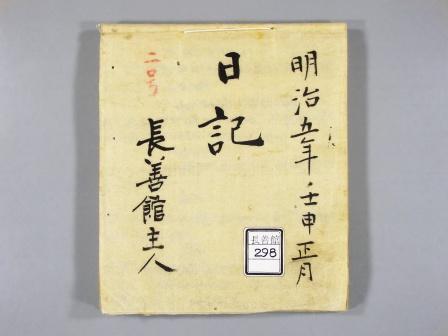 明治五年壬申正月
日記
長善館主人
二口号
長善館
298